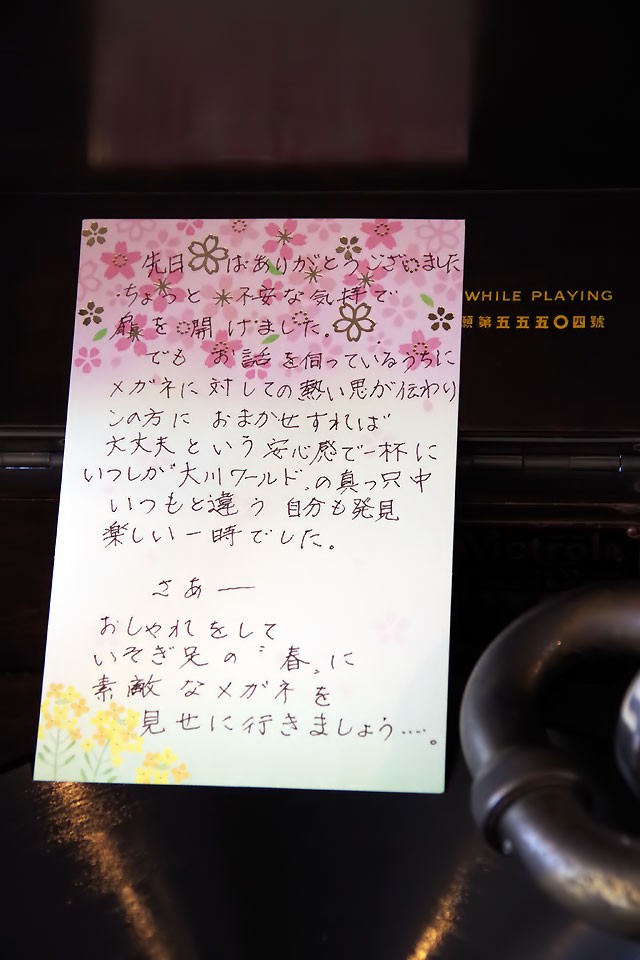 先日はありがとうございました
ちょっと不安な気持で
扉を開けました。
でも お話を伺っているうちに
メガネに対しての熱い思が伝わり
この方に おまかせすれば
大丈夫という安心感で一杯に
いつしか"大川ワールド"の真っ只中
いつもと違う 自分も発見
楽しい一時でした。
さあー
おしゃれをして
いそぎ足の"春"に
素敵なメガネを
見せに行きましょう……。
WHILE PLAYING
願第五五五〇四號
Victrola